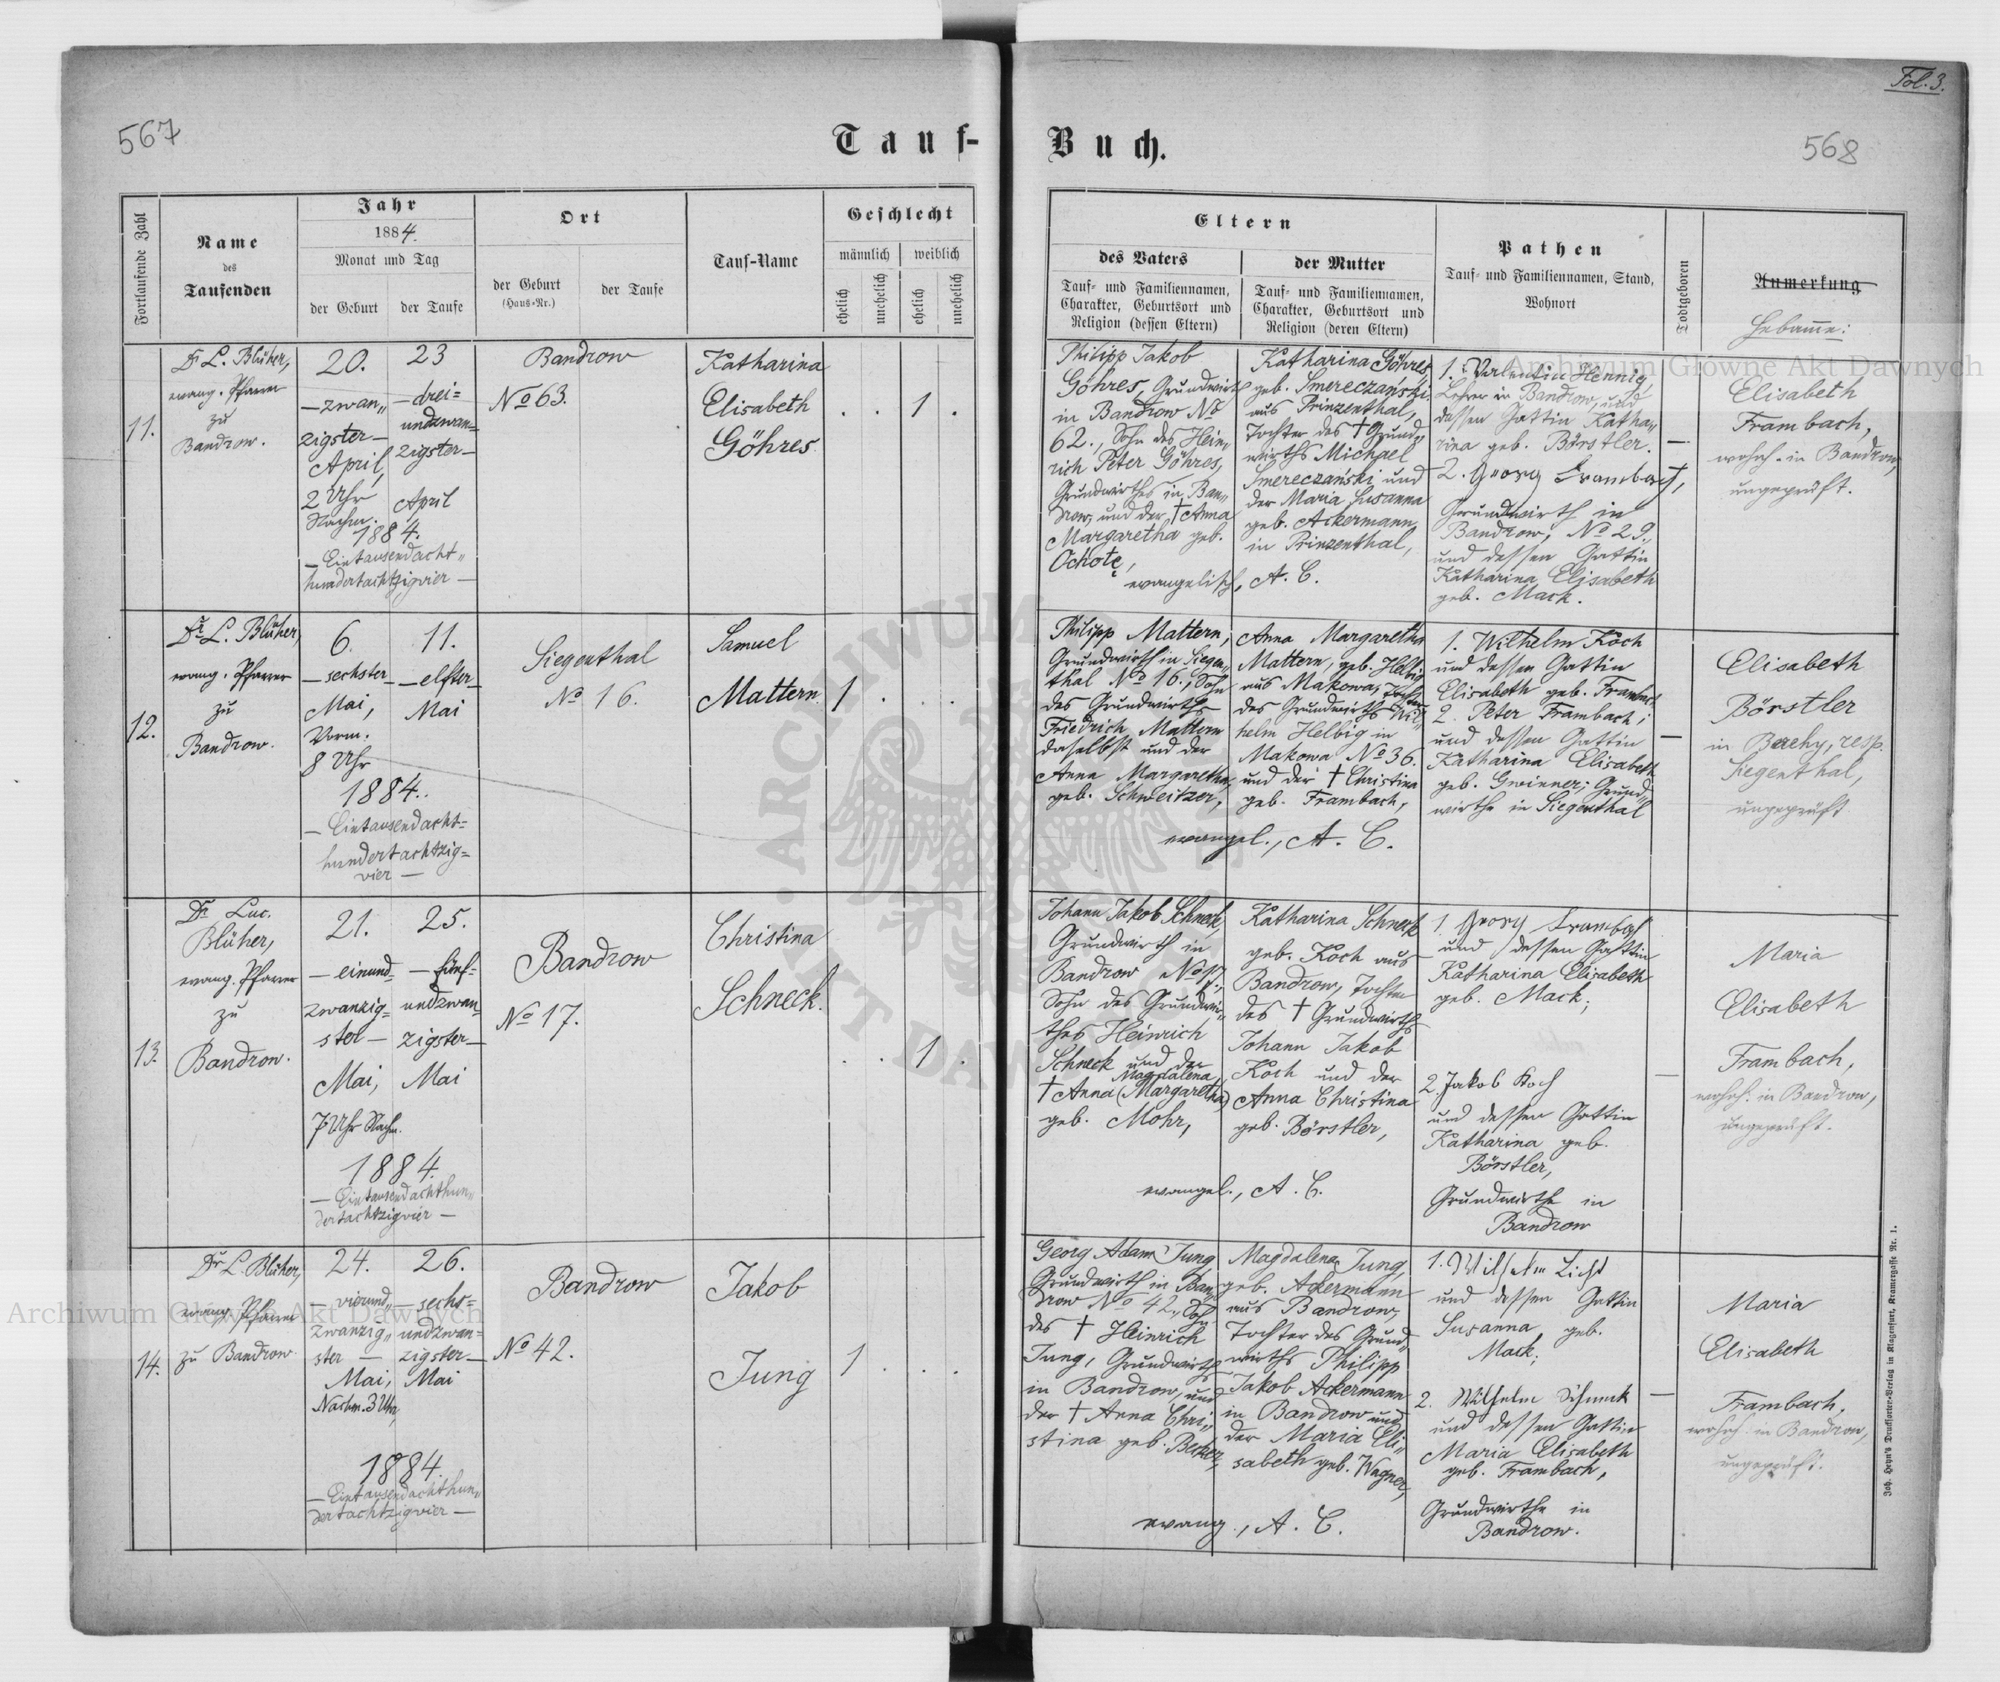 Fol. 3.
567
Tauf-
Buch.
568
Fortlaufende Zahl
Name
des
Taufenden
Jahr
1884.
Monat und Tag
der Geburt
der Taufe
Ort
der Geburt
(Haus-Nr.)
der Taufe
Tauf-Name
Geschlecht
männlich
weiblich
ehelich
unehelich
ehelich
unehelich
Eltern
des Vaters
Tauf- und Familiennamen,
Charakter, Geburtsort und
Religion (dessen Eltern)
der Mutter
Tauf- und Familiennamen,
Charakter, Geburtsort und
Religion (deren Eltern)
Pathen
Tauf- und Familiennamen, Stand,
Wohnort
Todtgeboren
Anmerkung
Hebamme:
11.
Dr L. Blüher,
evang. Pfarrer
zu
Bandrow.
20.
—zwan„
zigster—
April,
2 Uhr
Nachm.
23
—drei=
undzwan=
zigster—
April
1884.
—Eintausendacht„
hundertachtzigvier—
Bandrow
No 63.
Katharina
Elisabeth
Göhres
. . 1 .
Philipp Jakob
Göhres, Grundwirth
in Bandrow No
62., Sohn des Hein„
rich Peter Göhres,
Grundwirthes in Ban„
drow, und der † Anna
Margaretha geb.
Ochotę,
Katharina Göhres
geb. Smereczański
aus Prinzenthal,
Tochter des † Grund„
wirths Michael
Smereczański und
der Maria Susanna
geb. Ackermann,
in Prinzenthal,
evangelisch, A. C.
1. Valentin Hennig,
Lehrer in Bandrow, und
dessen Gattin Katha„
rina geb. Börstler.
2. Georg Frambach,
Grundwirth in
Bandrow, No 29.,
und dessen Gattin
Katharina Elisabeth
geb. Mack.
—
Elisabeth
Frambach,
wohnh. in Bandrow,
ungeprüft.
12.
Dr L. Blüher,
evang. Pfarrer
zu
Bandrow.
6.
—sechster
Mai,
Vorm.
8 Uhr
11.
—elfter—
Mai
1884.
—Eintausendacht=
hundertachtzig=
vier—
Siegenthal
No 16.
Samuel
Mattern
1 . . .
Philipp Mattern,
Grundwirth in Siegen„
thal No 16., Sohn
des Grundwirths
Friedrich Mattern
daselbst und der
Anna Margaretha,
geb. Schweitzer,
Anna Margaretha
Mattern, geb. Helbig
aus Makowa, Tochter
des Grundwirths Wil„
helm Helbig in
Makowa No 36.
und der † Christina
geb. Frambach,
evangel., A. C.
1. Wilhelm Koch
und dessen Gattin
Elisabeth geb. Frambach
2. Peter Frambach;
und dessen Gattin
Katharina Elisabeth
geb. Gwinner; Grund„
wirthe in Siegenthal
—
Elisabeth
Börstler
in Berehy, resp.
Siegenthal,
ungeprüft.
13.
Dr Luc.
Blüher,
evang. Pfarrer
zu
Bandrow.
21.
—einund=
zwanzig=
ster—
Mai,
7 Uhr Nachm.
25.
—fünf=
undzwan„
zigster—
Mai
1884.
—Eintausendachthun„
dertachtzigvier—
Bandrow
No 17.
Christina
Schneck.
. . 1 .
Johann Jakob Schneck,
Grundwirth in
Bandrow No 17.,
Sohn des Grundwir„
thes Heinrich
Schneck und der
Magdalena
† Anna (Margaretha)
geb. Mohr,
Katharina Schneck
geb. Koch aus
Bandrow, Tochter
des † Grundwirths
Johann Jakob
Koch und der
Anna Christina
geb. Börstler,
evangel., A. C.
1. Georg Frambach
und dessen Gattin
Katharina Elisabeth
geb. Mack;
2. Jakob Koch
und dessen Gattin
Katharina geb.
Börstler,
Grundwirthe in
Bandrow
—
Maria
Elisabeth
Frambach,
wohnh. in Bandrow,
ungeprüft.
14.
Dr L. Blüher,
evang. Pfarrer
zu Bandrow.
24.
—vierund„
zwanzig„
ster—
Mai,
Nachm. 3 Uhr,
26.
—sechs=
undzwan=
zigster—
Mai
1884.
—Eintausendachthun„
dertachtzigvier—
Bandrow
No 42.
Jakob
Jung
1 . . .
Georg Adam Jung
Grundwirth in Ban„
drow No 42., Sohn
des † Heinrich
Jung, Grundwirths
in Bandrow, und
der † Anna Chri„
stina geb. Becker,
Magdalena Jung,
geb. Ackermann
aus Bandrow,
Tochter des Grund„
wirths Philipp
Jakob Ackermann
in Bandrow und
der Maria Eli„
sabeth geb. Wagner,
evang., A. C.
1. Wilhelm Licht
und dessen Gattin
Susanna geb.
Mack;
2. Wilhelm Schneck
und dessen Gattin
Maria Elisabeth
geb. Frambach,
Grundwirthe in
Bandrow.
—
Maria
Elisabeth
Frambach,
wohnh. in Bandrow,
ungeprüft.
Joh. Heyn's Drucksorten-Verlag in Klagenfurt, Kramergasse Nr. 1.
Archiwum Główne Akt Dawnych
Archiwum Główne Akt Dawnych